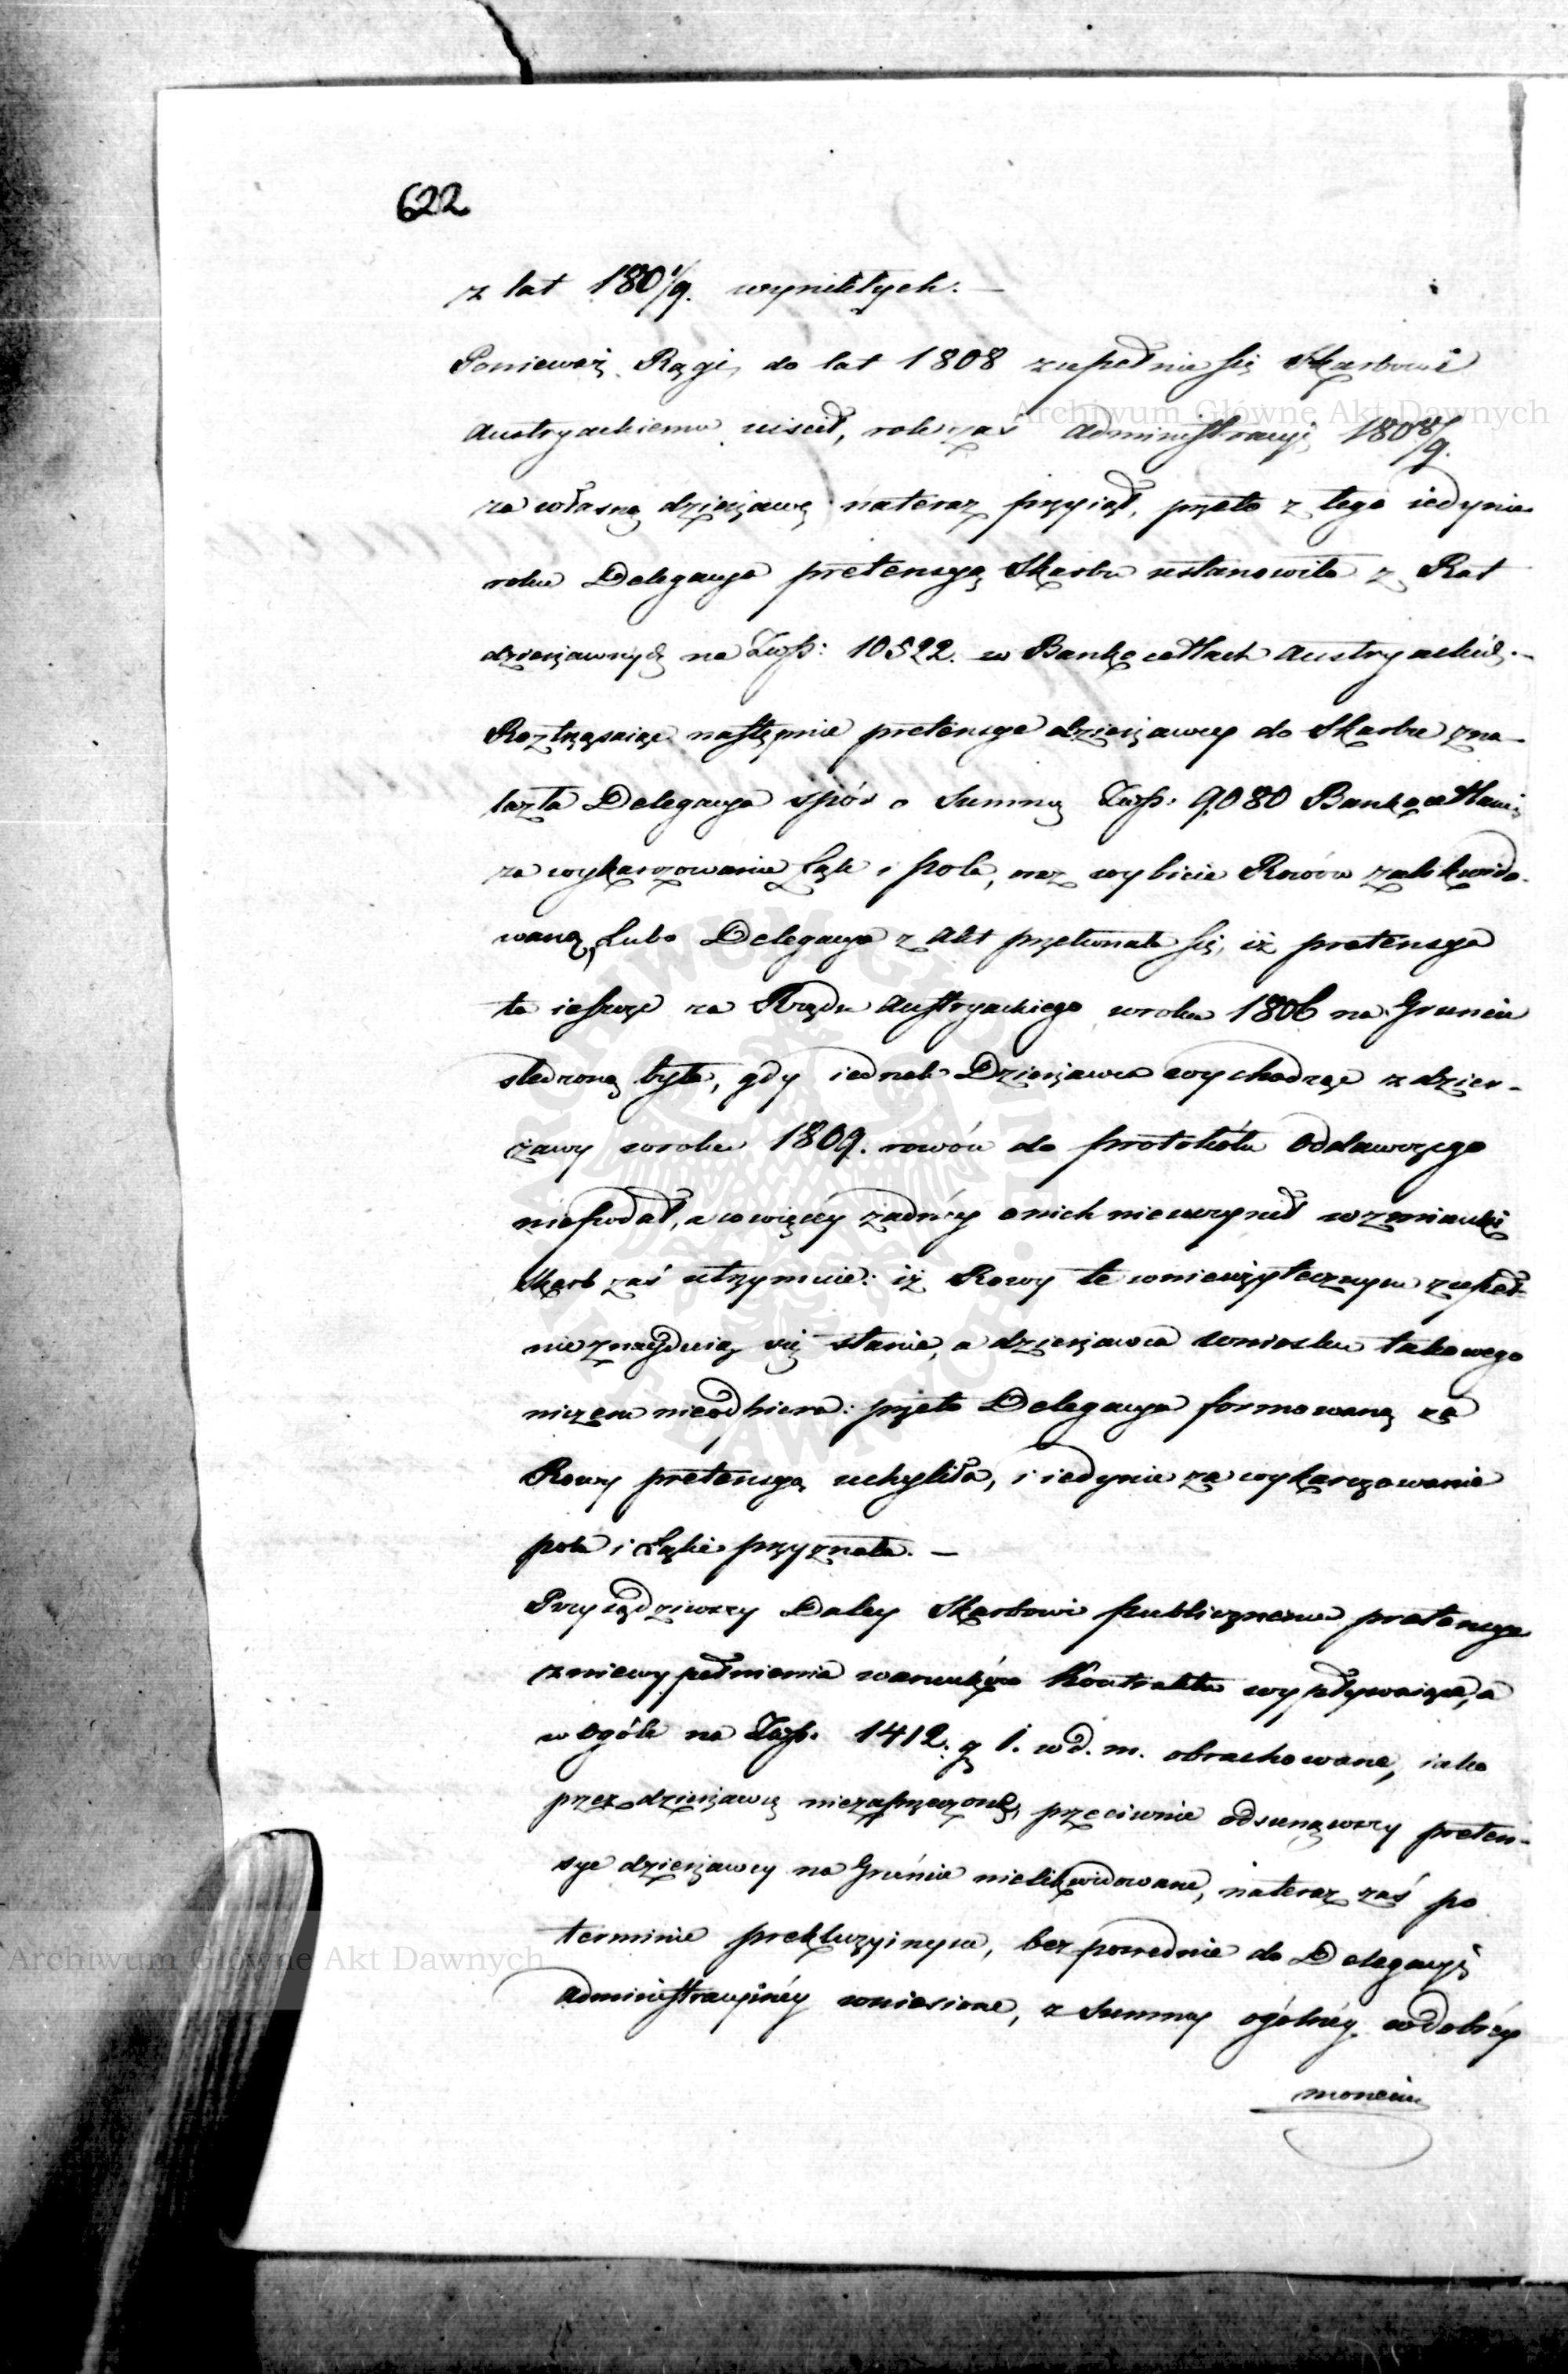 622
z lat 180 1/9. wynikłych. —
Ponieważ Rągi do lat 1808 zupełnie się Skarbowi
Austryackiemu uiscił, rok zas Administracyi 180 8/9.
za własną dzierżawę nateraz przyiął, przeto z tego iedynie
roku Delegacya pretensyą Skarbu ustanowiła z Rat
dzierżawnych na Złß: 10522. w Bankocetlach Austryackich. —
Roztrząsaiąc następnie pretensye dzierżawcy do Skarbu zna-
lazła Delegacya spór o Summę Złß: 9080 Bankocetlami
za wykarczowanie Łąk i pola, oraz wybicie Rowów zalikwido-
waną, Lubo Delegacya z Akt przekonała się, iż pretensya
ta ieszcze za Rządu Austryackiego w roku 1806 na Gruncie
sledzoną była, gdy iednak Dzierżawca wychodząc z dzier-
żawy w roku 1809. rowów do protokółu Oddawczego
niepodał, a co więcey żadnéy o nich nieuczynił wzmianki
Skarb zaś utrzymuie: iż Rowy te w nieużytecznym zupeł-
nie znayduią się stanie, a dzierżawca wniosku takowego
niczem nieodpiera: przeto Delegacya formowaną za
Rowy pretensyą uchyliła, i iedynie za wykarczowanie
pola i Łąki przyznała. —
Przysądziwszy Daley Skarbowi publicznemu pretensye
z niewypełnienia warunków Kontraktu wypływaiące, a
w ogóle na Złß. 1412. g 1. w d. m. obrachowane, iako
przez dzierżawcę niezaprzeczone, przeciwnie odsunąwszy preten-
sye dzierżawcy na Grúncie nielikwidowane, nateraz zaś po
terminie prekluzyinym, bezpośrednie do Delegacyi
Administracyinéy wniesione, z Summy ogólnéy w dobréy
monecie
Archiwum Główne Akt Dawnych
Archiwum Główne Akt Dawnych
ARCHIWUM GŁÓWNE AKT DAWNYCH